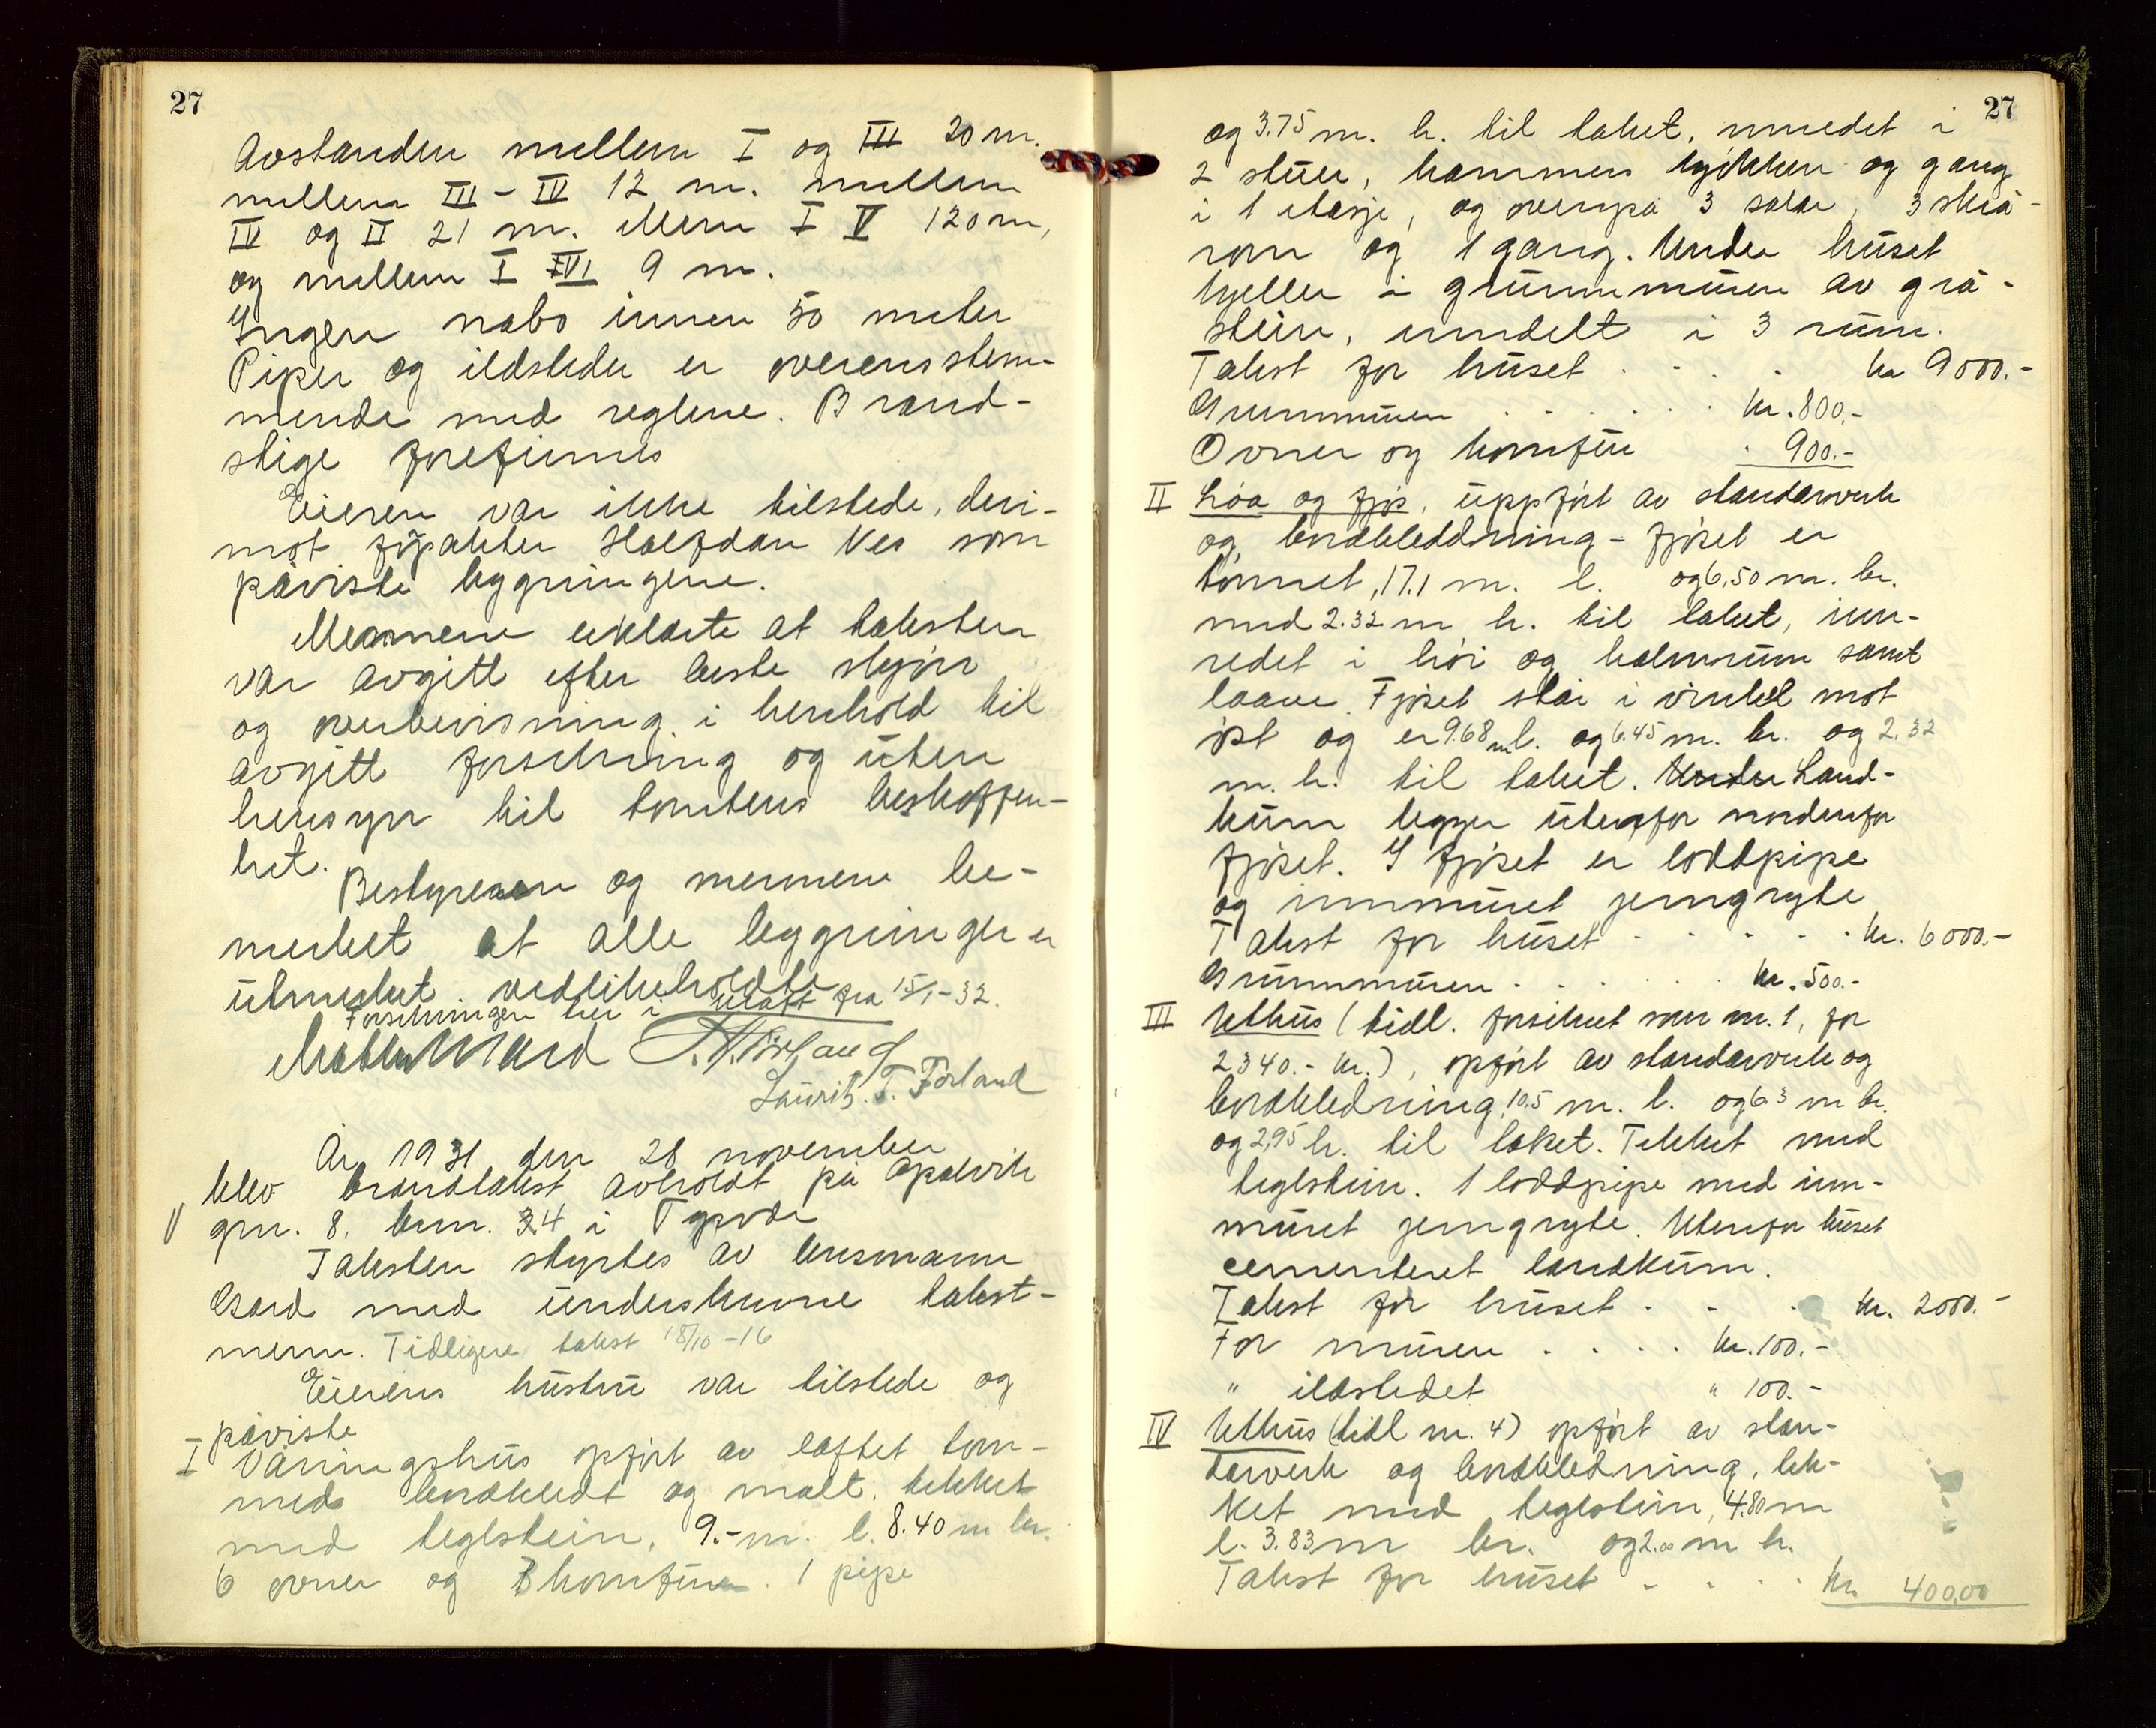 27
Avstanden mellem I og III 20 m.
mellem III - IV 12 m. mellem
IV og II 21 m. Mem I V 120 m,
og mellem I VI 9 m.
Ingen nabo innen 50 meter
Piper og ildsteder er overensstem-
mende med reglene. Brand-
stige forefinnes
Eieren var ikke tilstede, deri-
mot forpakter Halfdan Nes som
påviste bygningene.
Mennene erklærte at taksten
var avgitt efter beste skjøn
og overbevisning i henhold til
avgitt forsikring og uten
hensyn til tomtens beskaffen-
het.
Bestyreren og mennene be-
merket at alle bygninger er
utmerket vedlikeholdte
Forsikringen her i kraft fra 15/1-32.
Lauritz. T. Førland
År 1931 den 28 november
blev brandtakst avholdt på Apalvik
gnr. 8, bnr. 34 i Tysvær
Taksten styrtes av lensmann
Gard med underskrevne takst-
menn. Tidligere takst 18/10-16
Eierens hustru var tilstede og
påviste
I Våningshus opført av laftet tøm-
med bordkledt og malt, tekket
med teglstein, 9.- m. l. 8.40 m br.
6 ovner og komfur. 1 pipe
27
og 3.75 m. h. til taket, innredet i
2 stuer, kammers kjøkken og gang
i 1 etasje, og ovenpå 3 salar, 3 skrå-
rom og 1 gang. Under huset
kjeller i grunnmuren av grå-
stein, inndelt i 3 rum.
Takst for huset . . . . kr 9000.-
Grunnmuren . . . . . . kr. 800.-
Ovner og komfur . 900.-
II Løa og fjøs, uppført av standarverk
og bordkleddning - fjøset er
tømret, 17.1 m. l. og 6,50 m. br.
med 2.32 m h. til taket, inn-
redet i høi og halmrum samt
laave. Fjøset står i vinkel mot
øst og er 9.68 m l. og 6.45 m. br. og 2.32
m. h. til taket. Under Land-
kum ligger utenfor nordenfor
fjøset. I fjøset er loddpipe
og innmuret jerngryte
Takst for huset . . . . . kr. 6000.-
Grunnmuren . . . . . kr. 500.-
III Uthus (tidl. forsikret som nr. 1, for
2340.- kr.), opført av standarverk og
bordkledning, 10.5 m. l. og 6.3 m br.
og 2,95 h. til taket. Tekket med
teglstein. 1 loddpipe med inn-
muret jerngryte. Utenfor huset
cementeret landkum.
Takst for huset . . . kr. 2000.-
For muren . . . . kr. 100.-
" ildstedet " 100.-
IV Uthus (tidl nr. 4) opført av stan-
darverk og bordkledning, tek-
ket med teglstein, 4.80 m
l. 3.83 m br. og 2.00 m h.
Takst for huset . . . . kr 400,00